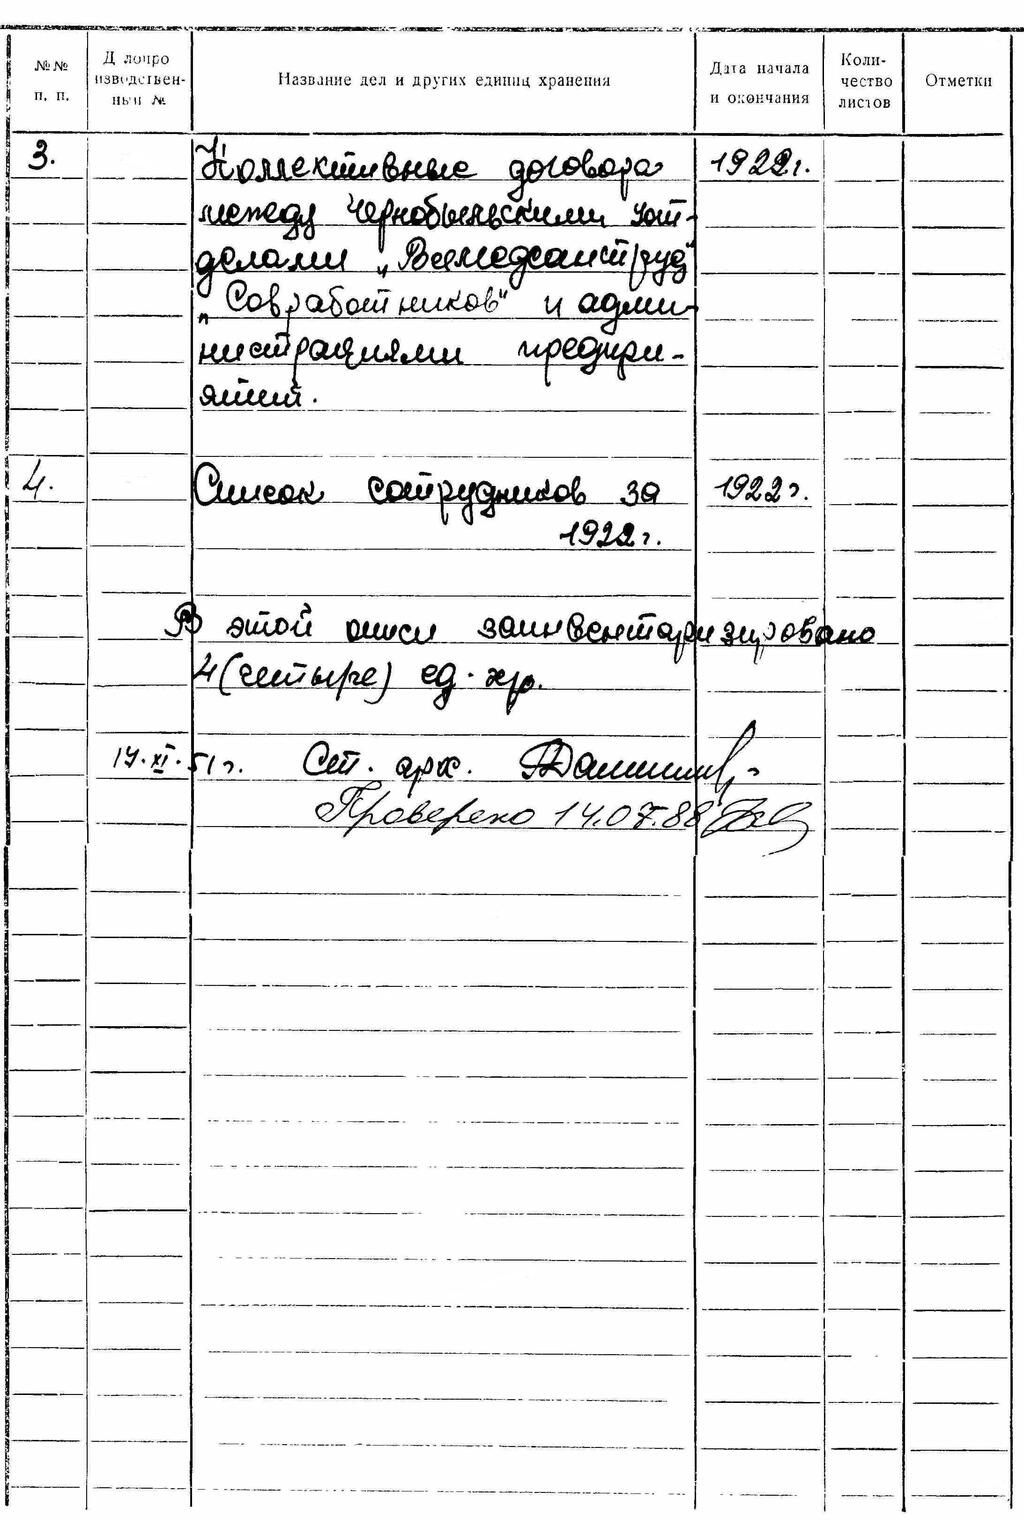 №№ п. п.
Д лопро изводствен- ный №
Название дел и других единиц хранения
Дата начала и окончания
Коли- чество листов
Отметки
3. Коллективные договора 1922г.
между Чернобыльскими уот-
делами „Всемедсантруд"
„Совработников" и адми-
нистрациями предпри-
ятий.
4. Список сотрудников за 1922г.
1922г.
В этой описи заинвентаризировано
4 (четыре) ед. хр.
14.XI.51г. Ст. арх.
Проверено 14.07.88